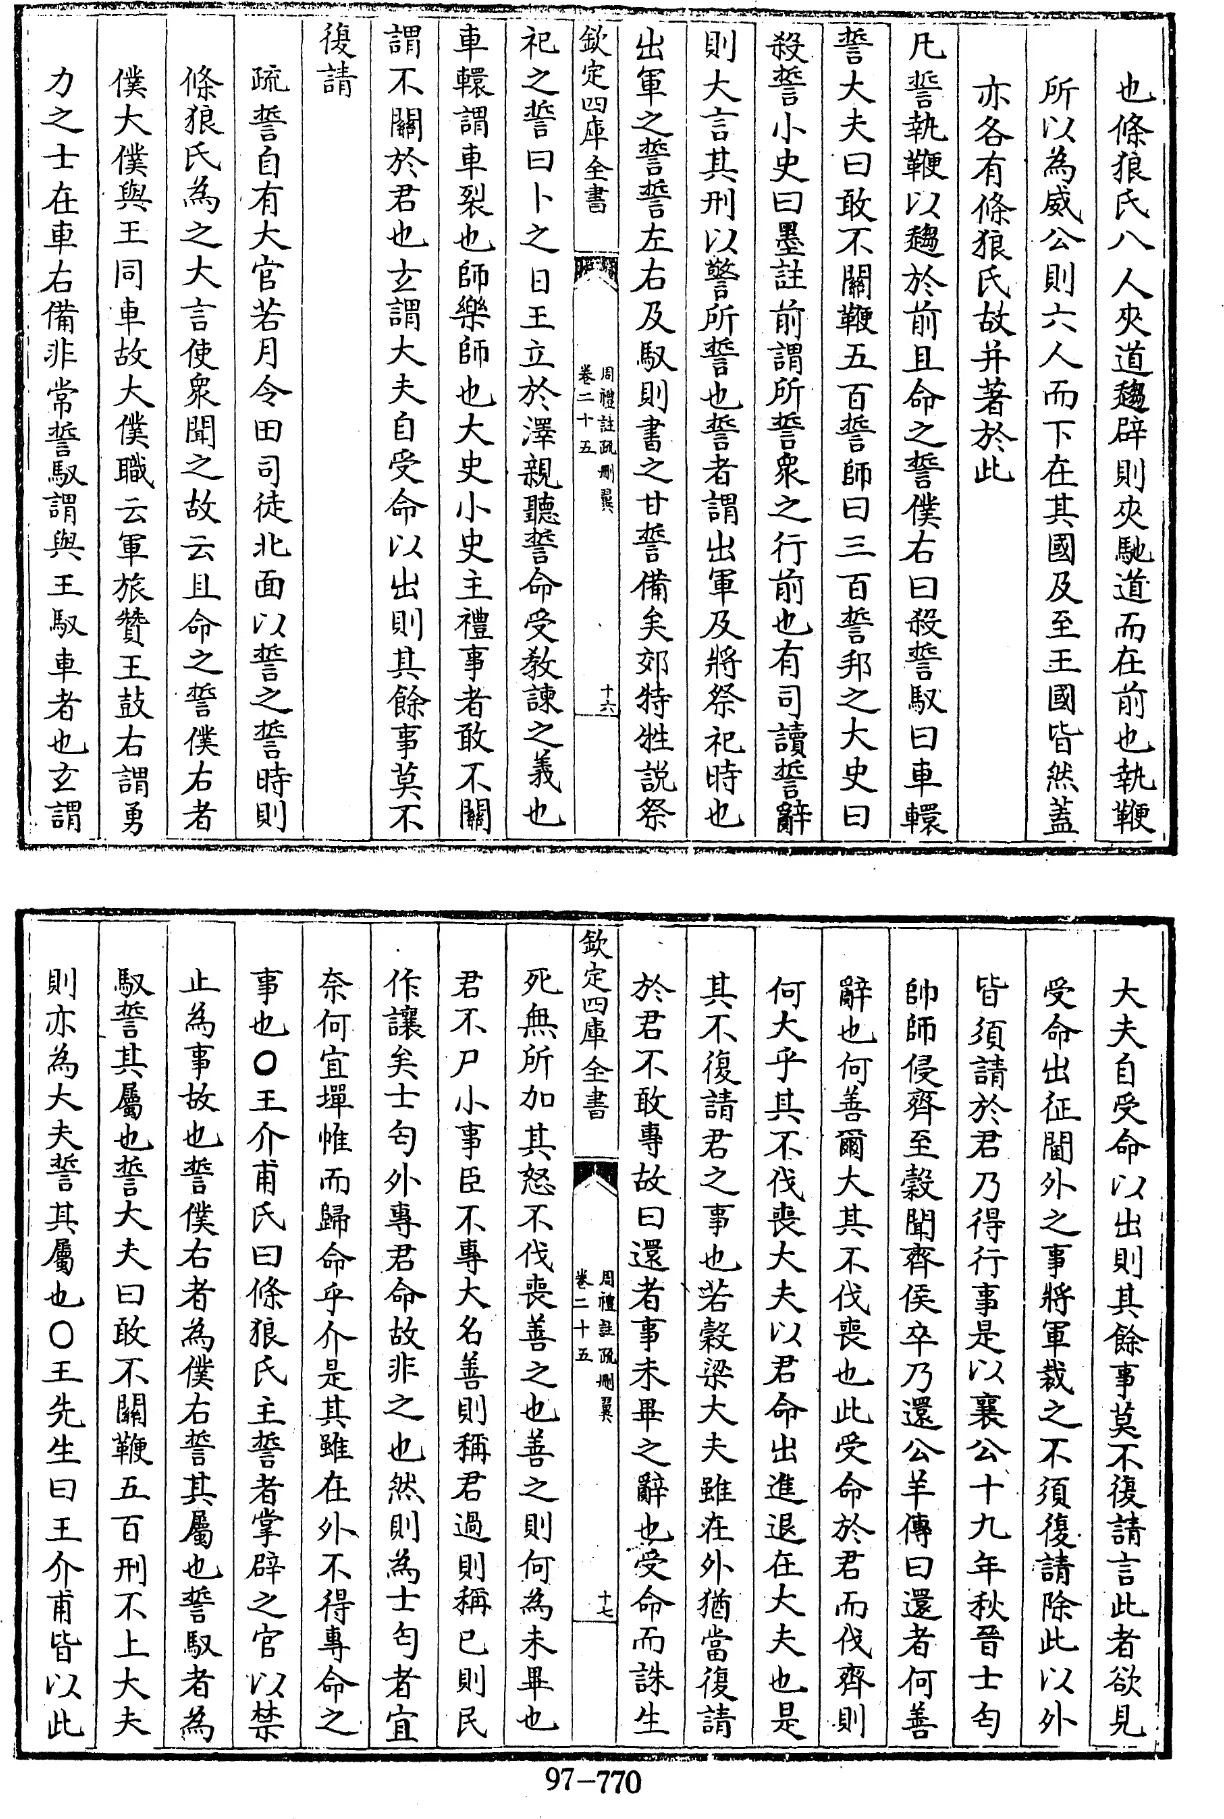 也條狼氏八人夾道趨辟則夾馳道而在前也執鞭
所以為威公則六人而下在其國及至王國皆然蓋
亦各有條狼氏故并著於此
凡誓執鞭以趨於前且命之誓僕右曰殺誓馭曰車轘
誓大夫曰敢不關鞭五百誓師曰三百誓邦之大史曰
殺誓小史曰墨註前謂所誓衆之行前也有司讀誓辭
則大言其刑以警所誓也誓者謂出軍及將祭祀時也
出軍之誓誓左右及馭則書之甘誓備矣郊特牲説祭
欽定四庫全書
周禮註疏刪翼
卷二十五
十六
祀之誓曰卜之日王立於澤親聽誓命受教諫之義也
車轘謂車裂也師樂師也大史小史主禮事者敢不關
謂不關於君也玄謂大夫自受命以出則其餘事莫不
復請
疏誓自有大官若月令田司徒北面以誓之誓時則
條狼氏為之大言使衆聞之故云且命之誓僕右者
僕大僕與王同車故大僕職云軍旅贊王鼓右謂勇
力之士在車右備非常誓馭謂與王馭車者也玄謂
大夫自受命以出則其餘事莫不復請言此者欲見
受命出征閫外之事將軍裁之不須復請除此以外
皆須請於君乃得行事是以襄公十九年秋晉士匄
帥師侵齊至穀聞齊侯卒乃還公羊傳曰還者何善
辭也何善爾大其不伐喪也此受命於君而伐齊則
何大乎其不伐喪大夫以君命出進退在大夫也是
其不復請君之事也若穀梁大夫雖在外猶當復請
於君不敢專故曰還者事未畢之辭也受命而誅生
欽定四庫全書
周禮註疏刪翼
卷二十五
十七
死無所加其怒不伐喪善之也善之則何為未畢也
君不尸小事臣不專大名善則稱君過則稱已則民
作讓矣士匄外專君命故非之也然則為士匄者宜
奈何宜墠帷而歸命乎介是其雖在外不得專命之
事也○王介甫氏曰條狼氏主誓者掌辟之官以禁
止為事故也誓僕右者為僕右誓其屬也誓馭者為
馭誓其屬也誓大夫曰敢不關鞭五百刑不上大夫
則亦為大夫誓其屬也○王先生曰王介甫皆以此
97-770